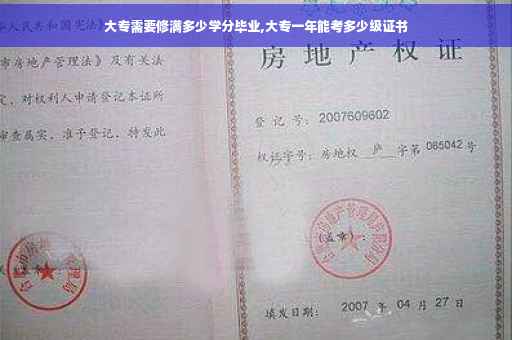 大专需要修满多少学分毕业,大专一年能考多少级证书
人民共和国宪法》
市房地产管理法》及有关
定，对权利人申请登记本证所
审查属实，准予登记，特发此
房地产权证
登记号：2007609602
权证字号：房地权 庐 字第 065042 号
(盖章)：
填发日期：2007 年 04 月 27 日